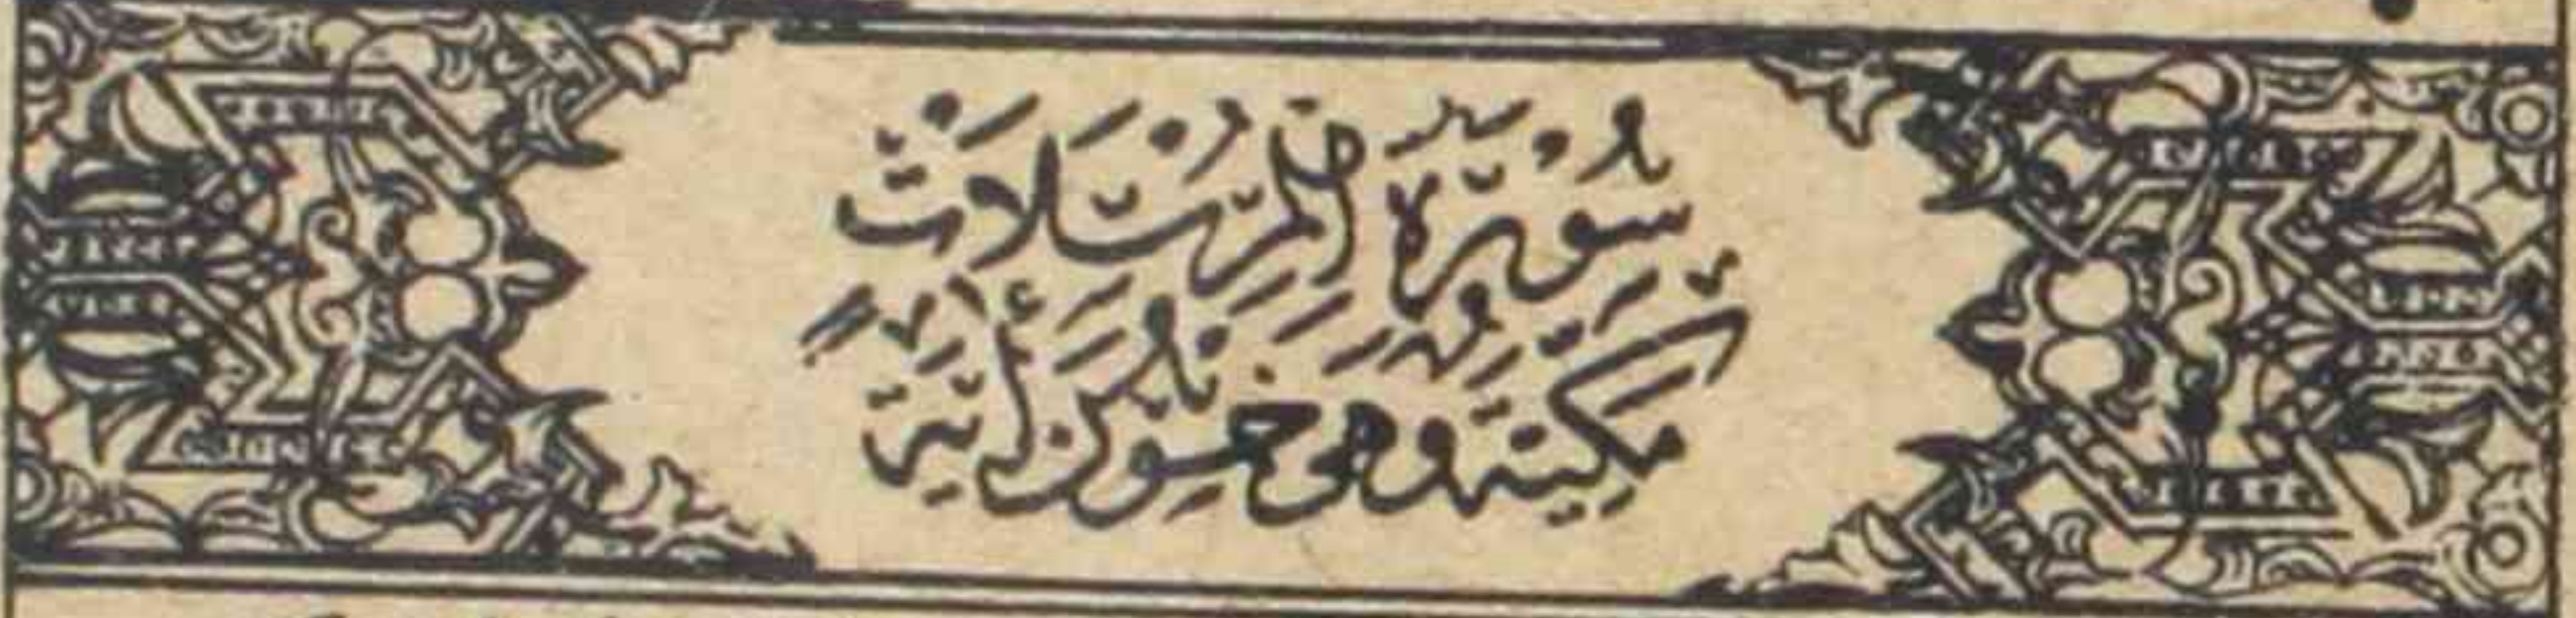 سُورَةُ الْمُرْسَلَاتْ
مَكِّيَّةٌ وَهِيَ خَمْسُونَ أٰيَةً